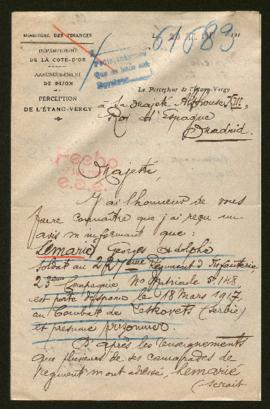 MINISTÈRE DES FINANCES
61683
DÉPARTEMENT
DE LA COTE-D'OR
ARRONDISSEMENT
DE DIJON
PERCEPTION
DE L'ÉTANG-VERGY
Le Percepteur de l'Étang-Vergy
à Sa Majesté Alphonse XIII,
Roi d'Espagne
Madrid
Majesté,
J'ai l'honneur de vous
faire connaître que j'ai reçu un
avis m'informant que :
Lemarié Georges Adolphe
Soldat au 227ème Régiment d'Infanterie
23ème Compagnie, No Matricule 5148
est porté disparu le 18 Mars 1917
au Combat de (Serbie)
et présumé prisonnier.
D'après les renseignements
que plusieurs de ses camarades de
régiment m'ont adressé, Lemarié
serait